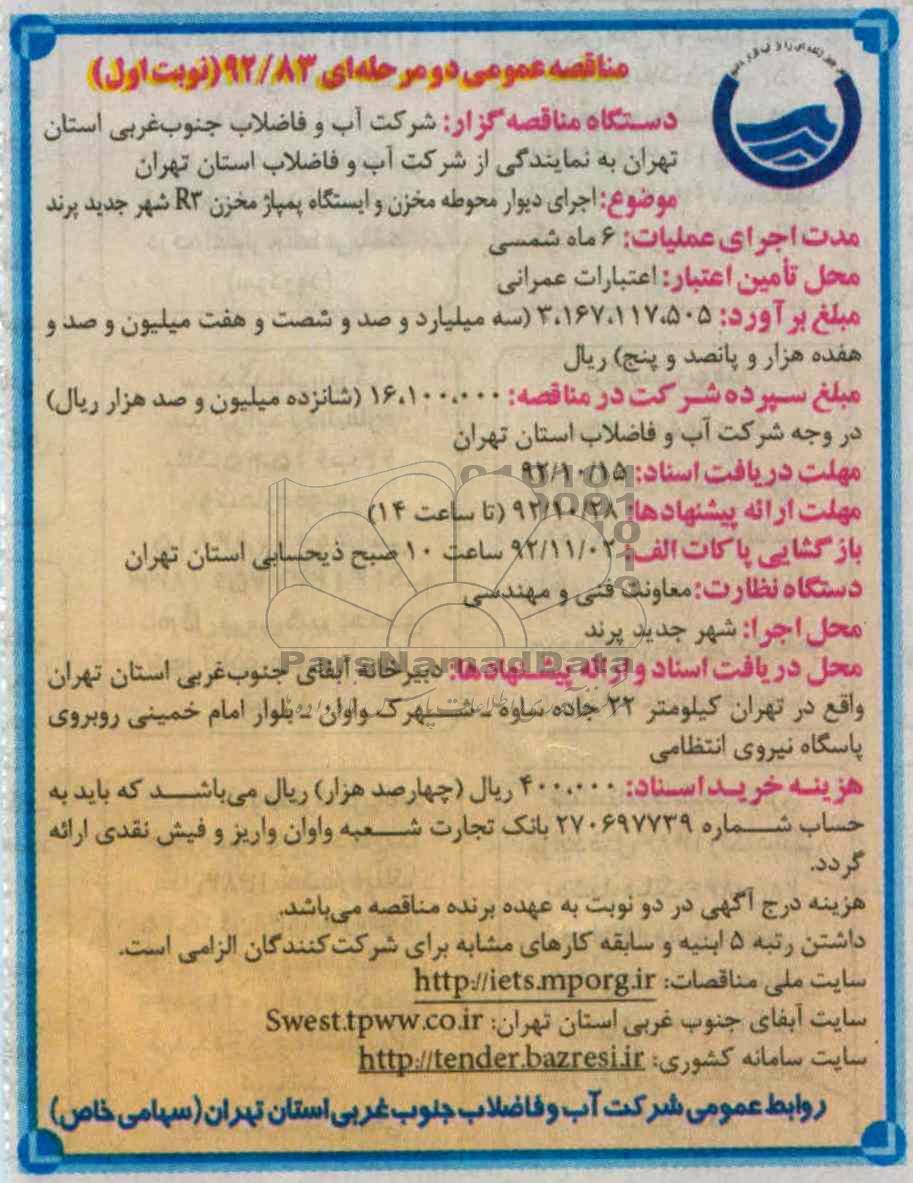 مناقصه عمومی دو مرحله‌ای ۹۲/۸۳ (نوبت اول)
دستگاه مناقصه گزار: شرکت آب و فاضلاب جنوب‌غربی استان
تهران به نمایندگی از شرکت آب و فاضلاب استان تهران
موضوع: اجرای دیوار محوطه مخزن و ایستگاه پمپاژ مخزن R۳ شهر جدید پرند
مدت اجرای عملیات: ۶ ماه شمسی
محل تأمین اعتبار: اعتبارات عمرانی
مبلغ برآورد: ۳،۱۶۷،۱۱۷،۵۰۵ (سه میلیارد و صد و شصت و هفت میلیون و صد و
هفده هزار و پانصد و پنج) ریال
مبلغ سپرده شرکت در مناقصه: ۱۶،۱۰۰،۰۰۰ (شانزده میلیون و صد هزار ریال)
در وجه شرکت آب و فاضلاب استان تهران
مهلت دریافت اسناد: ۹۲/۱۰/۱۵
مهلت ارائه پیشنهادها: ۹۲/۱۰/۲۸ (تا ساعت ۱۴)
بازگشایی پاکات الف: ۹۲/۱۱/۰۲ ساعت ۱۰ صبح ذیحسابی استان تهران
دستگاه نظارت: معاونت فنی و مهندسی
محل اجرا: شهر جدید پرند
ParsNamadData
محل دریافت اسناد و ارائه پیشنهادها: دبیرخانه آبفای جنوب‌غربی استان تهران
واقع در تهران کیلومتر ۲۲ جاده ساوه ـ شهرک واوان ـ بلوار امام خمینی روبروی
پاسگاه نیروی انتظامی
هزینه خرید اسناد: ۴۰۰،۰۰۰ ریال (چهارصد هزار) ریال می‌باشد که باید به
حساب شماره ۲۷۰۶۹۷۷۳۹ بانک تجارت شعبه واوان واریز و فیش نقدی ارائه
گردد.
هزینه درج آگهی در دو نوبت به عهده برنده مناقصه می‌باشد.
داشتن رتبه ۵ ابنیه و سابقه کارهای مشابه برای شرکت‌کنندگان الزامی است.
سایت ملی مناقصات: http://iets.mporg.ir
سایت آبفای جنوب غربی استان تهران: Swest.tpww.co.ir
سایت سامانه کشوری: http://tender.bazresi.ir
روابط عمومی شرکت آب و فاضلاب جنوب غربی استان تهران (سهامی خاص)